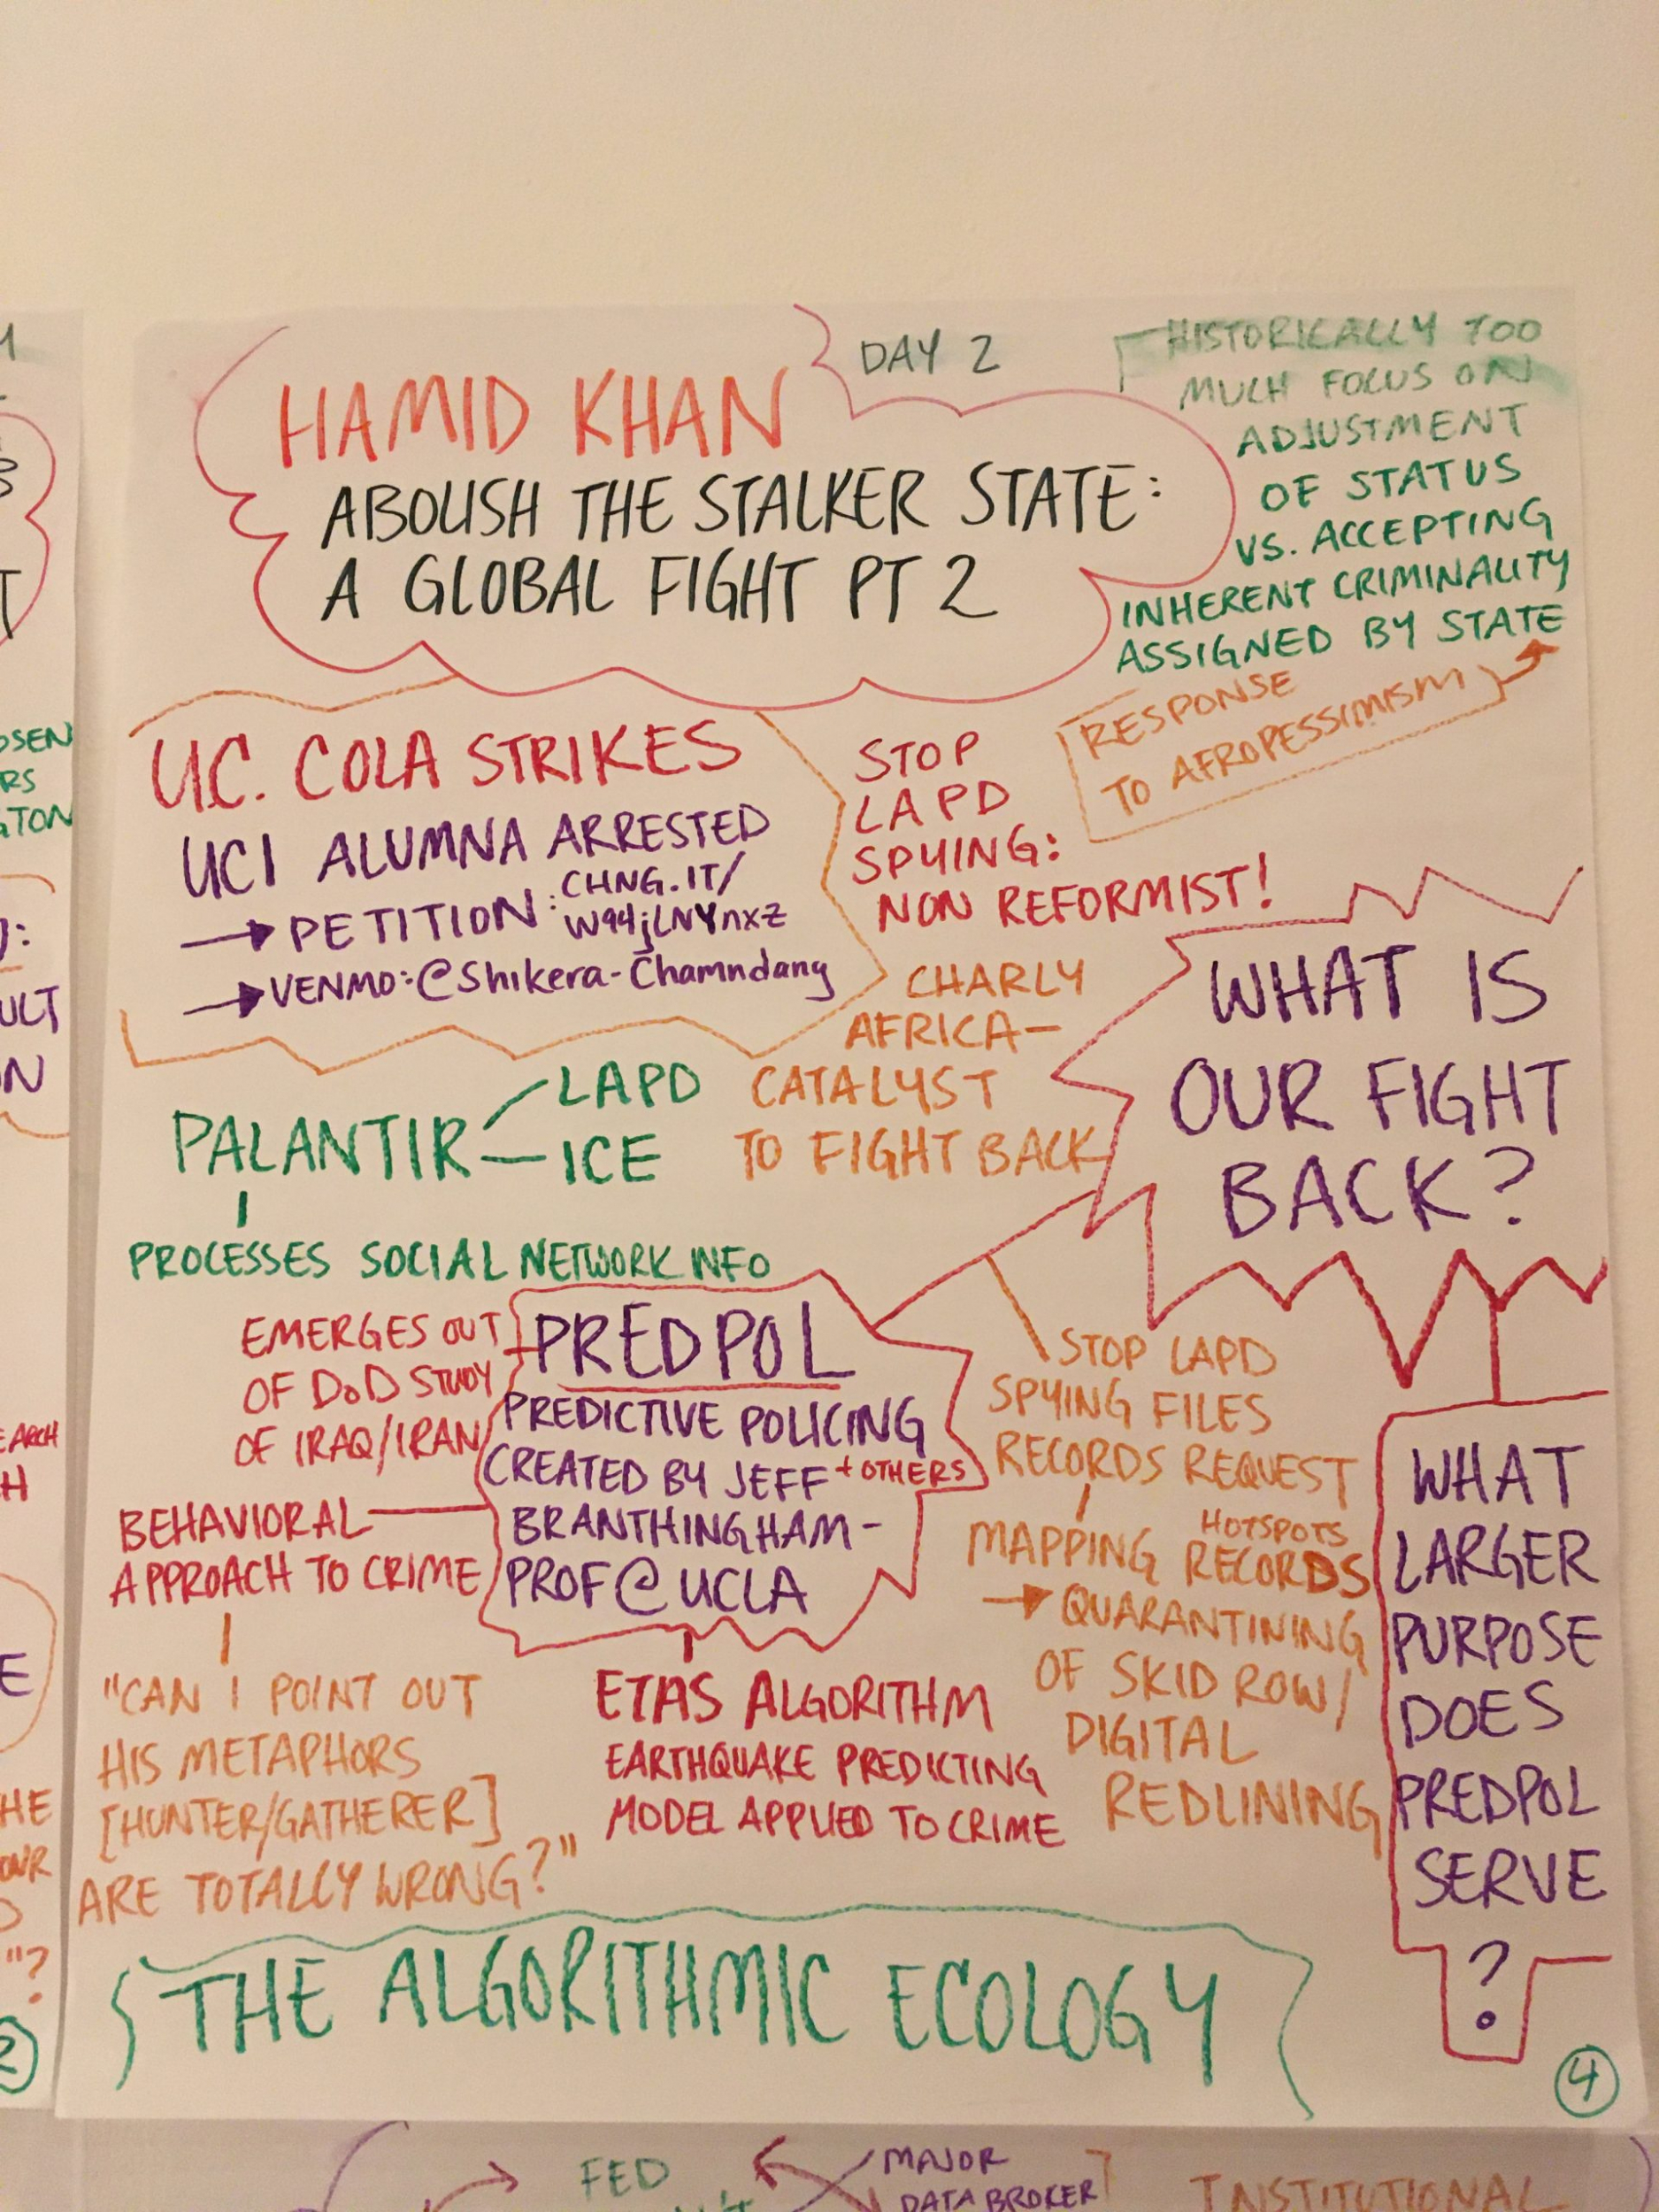 DAY 2
HAMID KHAN
ABOLISH THE STALKER STATE:
A GLOBAL FIGHT PT 2
HISTORICALLY TOO
MUCH FOCUS ON
ADJUSTMENT
OF STATUS
VS. ACCEPTING
INHERENT CRIMINALITY
ASSIGNED BY STATE
RESPONSE
TO AFROPESSIMISM
U.C. COLA STRIKES
UCI ALUMNA ARRESTED
→ PETITION: CHNG.IT/
W94jLNYnxZ
→ VENMO: @Shikera-Chamndany
STOP
LAPD
SPYING:
NON REFORMIST!
CHARLY
AFRICA—
CATALYST
TO FIGHT BACK
WHAT IS
OUR FIGHT
BACK?
PALANTIR
LAPD
ICE
PROCESSES SOCIAL NETWORK INFO
EMERGES OUT
OF DoD STUDY
OF IRAQ/IRAN
PREDPOL
PREDICTIVE POLICING
CREATED BY JEFF + OTHERS
BRANTHINGHAM-
PROF @ UCLA
BEHAVIORAL
APPROACH TO CRIME
"CAN I POINT OUT
HIS METAPHORS
[HUNTER/GATHERER]
ARE TOTALLY WRONG?"
ETAS ALGORITHM
EARTHQUAKE PREDICTING
MODEL APPLIED TO CRIME
STOP LAPD
SPYING FILES
RECORDS REQUEST
HOTSPOTS
MAPPING RECORDS
→ QUARANTINING
OF SKID ROW/
DIGITAL
REDLINING
WHAT
LARGER
PURPOSE
DOES
PREDPOL
SERVE
?
THE ALGORITHMIC ECOLOGY
4
OSEN
RS
GTON
ULT
EARCH
HE
"?
2
FED
MAJOR
DATA BROKER
INSTITUTIONAL